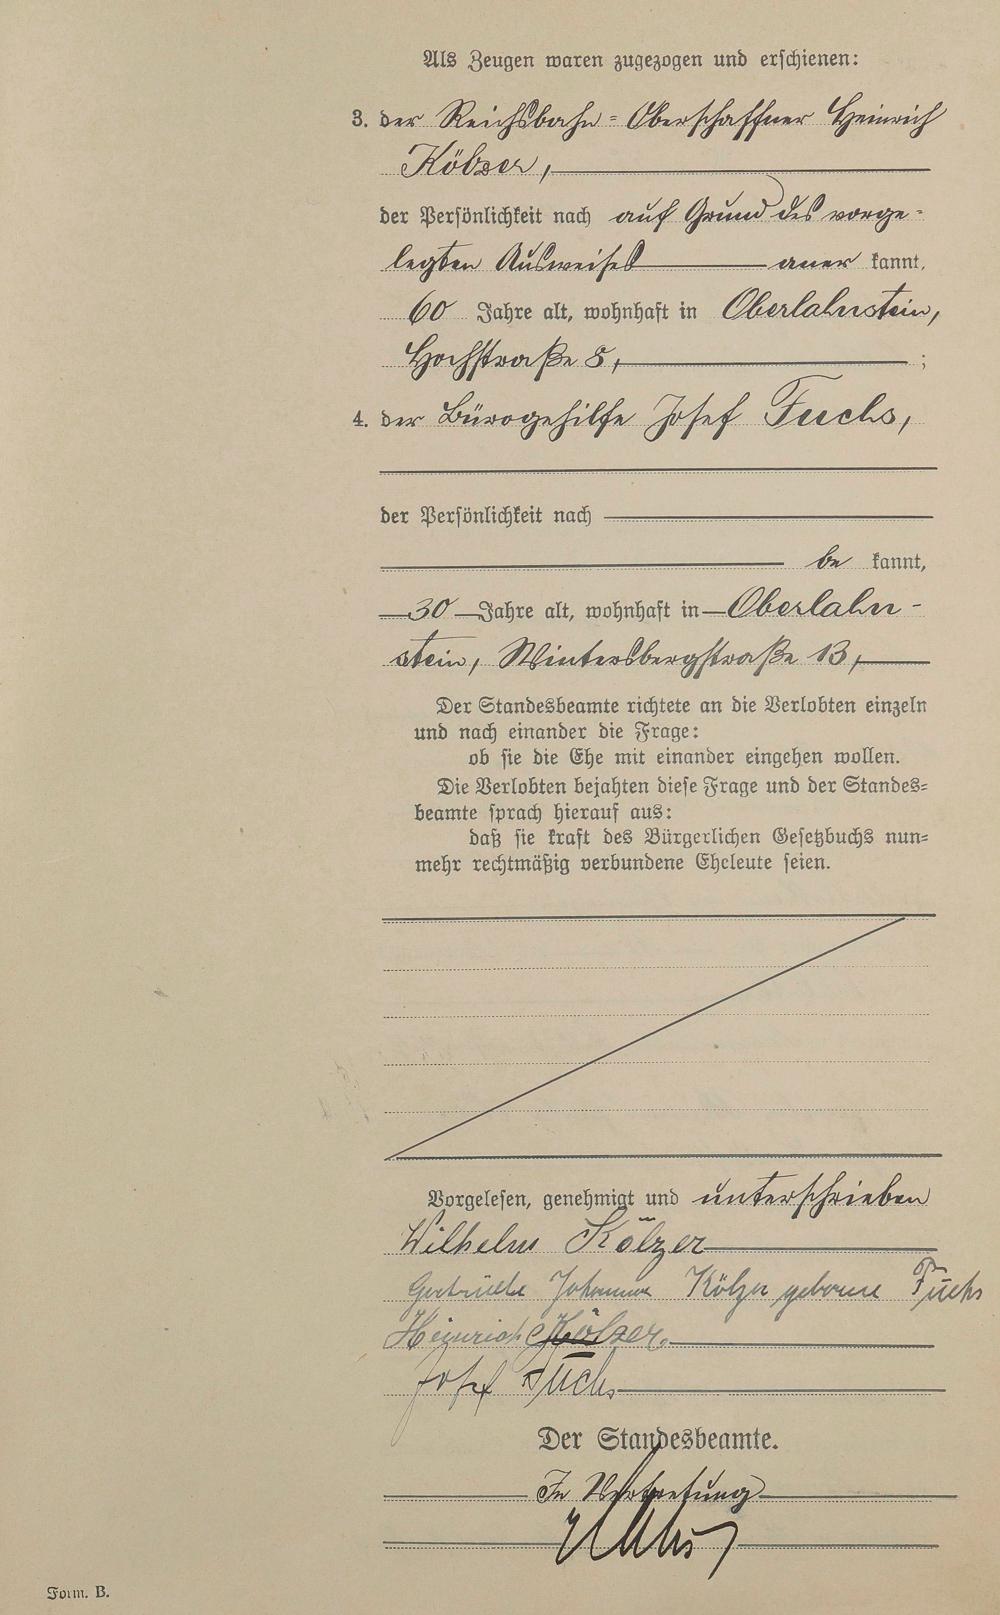 Als Zeugen waren zugezogen und erschienen:
3. der Reichsbahn-Oberschaffner Heinrich
Kölzer,
der Persönlichkeit nach auf Grund des vorge-
legten Ausweises aner kannt,
60 Jahre alt, wohnhaft in Oberlahnstein,
Hochstraße 8, ;
4. der Bürogehilfe Josef Fuchs,
der Persönlichkeit nach
be kannt,
30 Jahre alt, wohnhaft in Oberlahn-
stein, Wintersbergstraße 13,
Der Standesbeamte richtete an die Verlobten einzeln
und nach einander die Frage:
ob sie die Ehe mit einander eingehen wollen.
Die Verlobten bejahten diese Frage und der Standes-
beamte sprach hierauf aus:
daß sie kraft des Bürgerlichen Gesetzbuchs nun-
mehr rechtmäßig verbundene Eheleute seien.
Vorgelesen, genehmigt und unterschrieben
Wilhelm Kölzer
Johanna Kölzer geborene Fuchs
Heinrich Kölzer.
Josef Fuchs
Der Standesbeamte.
In Vertretung
Form. B.